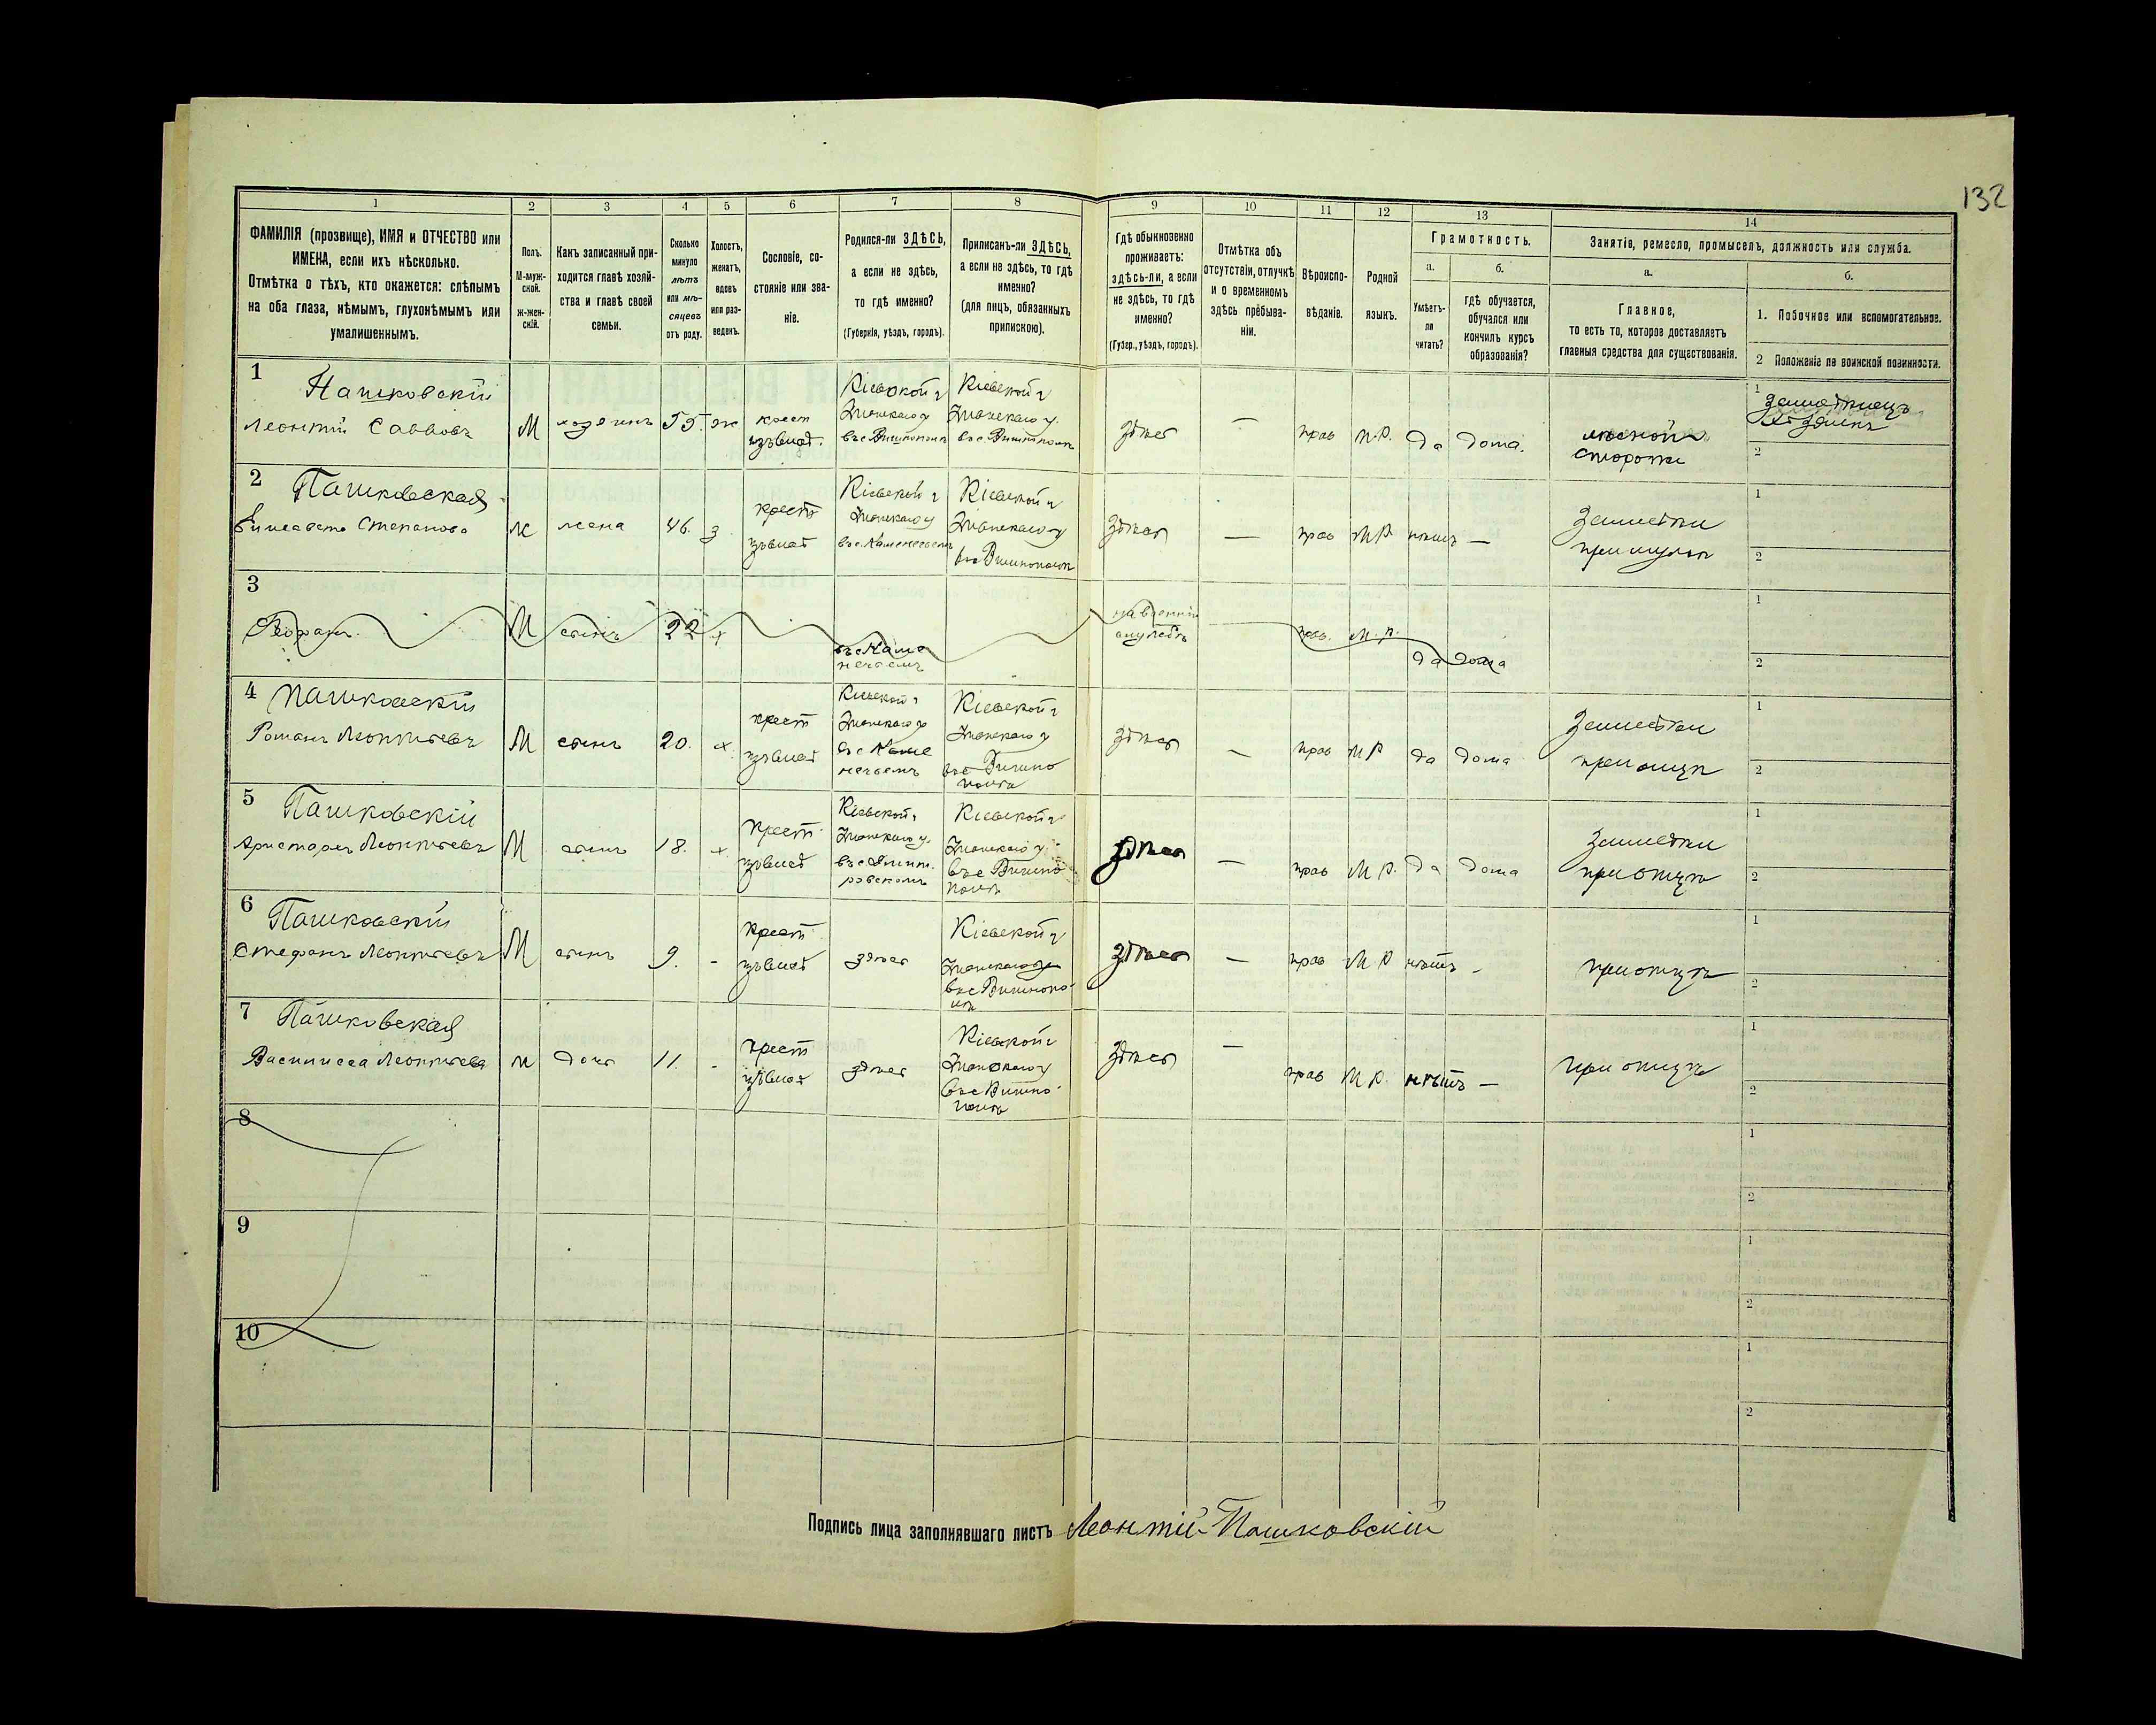 132
1 2 3 4 5 6 7 8 9 10 11 12 13 14
ФАМИЛІЯ (прозвище), ИМЯ и ОТЧЕСТВО или
ИМЕНА, если ихъ нѣсколько.
Отмѣтка о тѣхъ, кто окажется: слѣпымъ
на оба глаза, нѣмымъ, глухонѣмымъ или
умалишеннымъ.
Полъ.
М-муж-
ской.
Ж-жен-
скій.
Какъ записанный при-
ходится главѣ хозяй-
ства и главѣ своей
семьи.
Сколько
минуло
лѣтъ
или мѣ-
сяцевъ
отъ роду.
Холостъ,
женатъ,
вдовъ
или раз-
веденъ.
Сословіе, со-
стояніе или зва-
ніе.
Родился-ли ЗДѢСЬ,
а если не здѣсь,
то гдѣ именно?
(Губернія, уѣздъ, городъ).
Приписанъ-ли ЗДѢСЬ,
а если не здѣсь, то гдѣ
именно?
(для лицъ, обязанныхъ
припискою).
Гдѣ обыкновенно
проживаетъ:
здѣсь-ли, а если
не здѣсь, то гдѣ
именно?
(Губер., уѣздъ, городъ).
Отмѣтка объ
отсутствіи, отлучкѣ
и о временномъ
здѣсь пребыва-
ніи.
Вѣроиспо-
вѣданіе.
Родной
языкъ.
Грамотность.
а.
Умѣетъ-
ли
читать?
б.
гдѣ обучается,
обучался или
кончилъ курсъ
образованія?
Занятіе, ремесло, промыселъ, должность или служба.
а.
Главное,
то есть то, которое доставляетъ
главныя средства для существованія.
б.
1. Побочное или вспомогательное.
2 Положеніе по воинской повинности.
1
Пашковскій
Леонтій Саввовъ
М
хозяинъ
55.
ж
крест
Кіевской г
въ с Вишнополѣ
Кіевской г
въ с Вишнополѣ
здѣсь
—
прав
М.Р.
да
дома.
лѣсной
сторожъ
1
2
2
Пашковская
Елисавета Степанова
ж
жена
46.
з
крест
Кіевской г
Кіевской г
въ с Вишнополѣ
здѣсь
—
прав
М Р.
нѣтъ
—
1
2
3
М
сынъ
22
х
въ с Каме
нечьемъ
прав.
М.Р.
да
дома
1
2
4
Пашковскій
Романъ Леонтьевъ
М
сынъ
20.
х.
крест
Кіевской г
въ с Каме
нечьемъ
Кіевской г
въ с Вишно
полѣ
здѣсь
—
прав
М Р
да
дома
при отцѣ
1
2
5
Пашковскій
Аристархъ Леонтьевъ
М
сынъ
18.
х
крест
Кіевской г
Кіевской г
въ с Вишно
полѣ
здѣсь
—
прав
М Р.
да
дома
при отцѣ
1
2
6
Пашковскій
Стефанъ Леонтьевъ
М
сынъ
9.
-
крест
здѣсь
Кіевской г
въ с Вишнопо
лѣ
здѣсь
—
прав
М Р
нѣтъ
-
при отцѣ
1
2
7
Пашковская
Василисса Леонтьева
ж
дочь
11.
-
крест
здѣсь
Кіевской г
въ с Вишно
полѣ
здѣсь
—
прав
М Р.
нѣтъ
—
при отцѣ
1
2
8
1
2
9
1
2
10
1
2
Подпись лица заполнявшаго листъ Леонтій Пашковскій